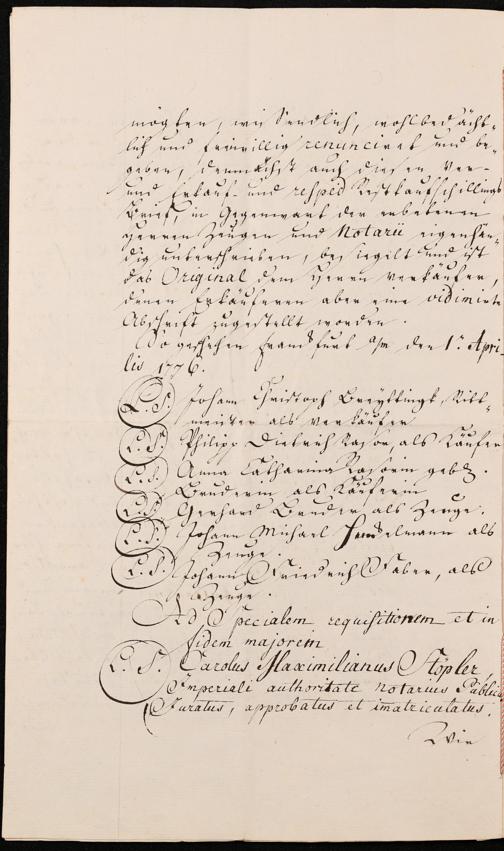 mögten, wie sendlich, wohlbedächt-
lich und freiwillig renunciret und be-
geben, demnächst auch diesen Ver-
und Erkauf- und resped Restkaufschillings
Brief, in Gegenwart der erbetenen
Herren Zeugen und Notarii eigenhän-
dig unterschrieben, besiegelt und ist
das Original dem Herrn Verkäufer,
denen Erkäuferen aber eine vidimirte
Abschrift zugestellt worden.
So geschehen Frankfurt a/m den 1r. Apri-
lis 1776.
L. S. Johann Christoph Ritt-
meister als Verkäufer
L. S. Philipp Dietrich Rasor als Käufer
L. S. Anna Catharina Rasorin geb.
Bruderin als Käuferin
L. S. Gerhard Bruder als Zeuge.
L. S. Johann Michael als
Zeuge.
L. S. Johann Friedrich Faber, als
Zeuge.
Ad Specialem requisitionem et in
fidem majorem
L. S. Carolus Maximilianus Stöpler,
Imperiali authoritate Notarius Publicus
Juratus, approbatus et imatriculatus.
Wir